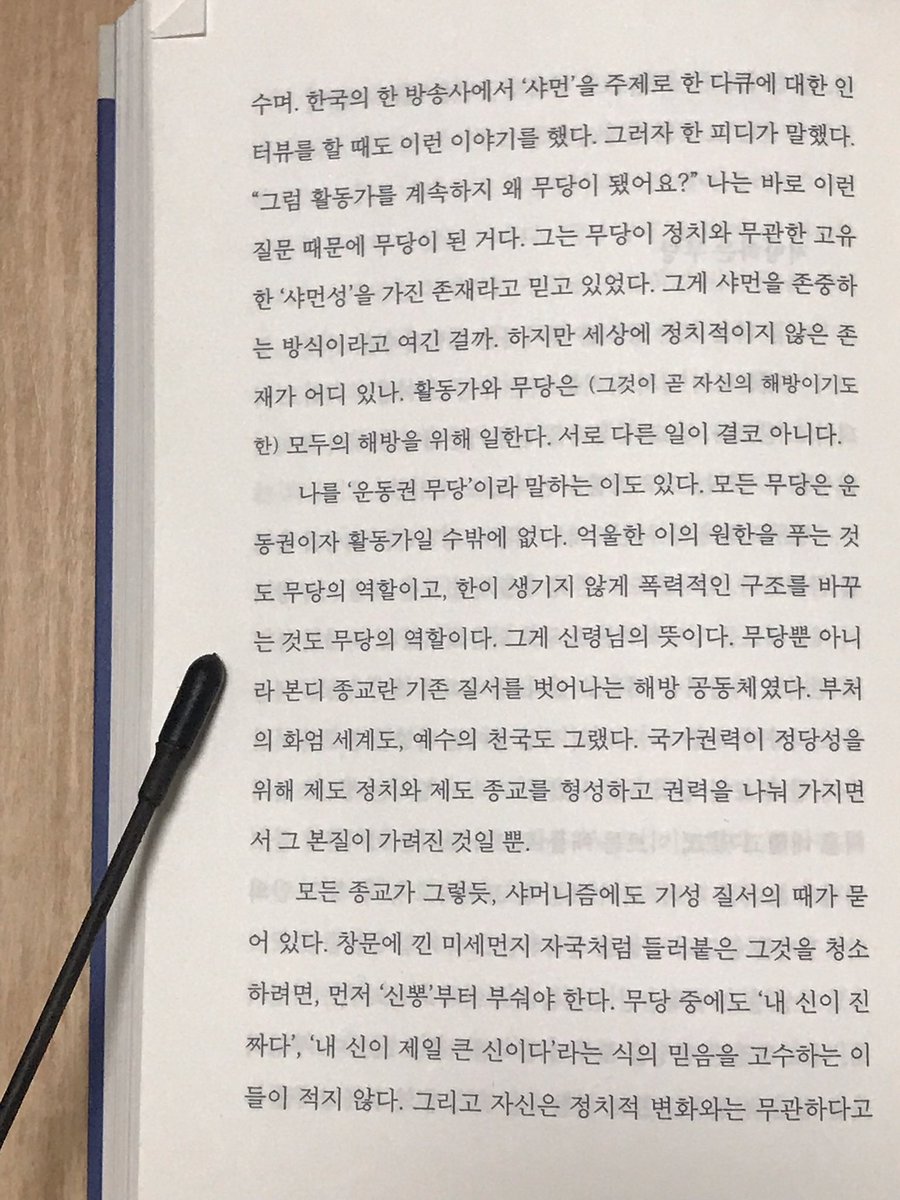 수며. 한국의 한 방송사에서 ‘샤먼’을 주제로 한 다큐에 대한 인
터뷰를 할 때도 이런 이야기를 했다. 그러자 한 피디가 말했다.
“그럼 활동가를 계속하지 왜 무당이 됐어요?” 나는 바로 이런
질문 때문에 무당이 된 거다. 그는 무당이 정치와 무관한 고유
한 ‘샤먼성’을 가진 존재라고 믿고 있었다. 그게 샤먼을 존중하
는 방식이라고 여긴 걸까. 하지만 세상에 정치적이지 않은 존
재가 어디 있나. 활동가와 무당은 (그것이 곧 자신의 해방이기도
한) 모두의 해방을 위해 일한다. 서로 다른 일이 결코 아니다.
나를 ‘운동권 무당’이라 말하는 이도 있다. 모든 무당은 운
동권이자 활동가일 수밖에 없다. 억울한 이의 원한을 푸는 것
도 무당의 역할이고, 한이 생기지 않게 폭력적인 구조를 바꾸
는 것도 무당의 역할이다. 그게 신령님의 뜻이다. 무당뿐 아니
라 본디 종교란 기존 질서를 벗어나는 해방 공동체였다. 부처
의 화엄 세계도, 예수의 천국도 그랬다. 국가권력이 정당성을
위해 제도 정치와 제도 종교를 형성하고 권력을 나눠 가지면
서 그 본질이 가려진 것일 뿐.
모든 종교가 그렇듯, 샤머니즘에도 기성 질서의 때가 묻
어 있다. 창문에 낀 미세먼지 자국처럼 들러붙은 그것을 청소
하려면, 먼저 ‘신뽕’부터 부숴야 한다. 무당 중에도 ‘내 신이 진
짜다’, ‘내 신이 제일 큰 신이다’라는 식의 믿음을 고수하는 이
들이 적지 않다. 그리고 자신은 정치적 변화와는 무관하다고